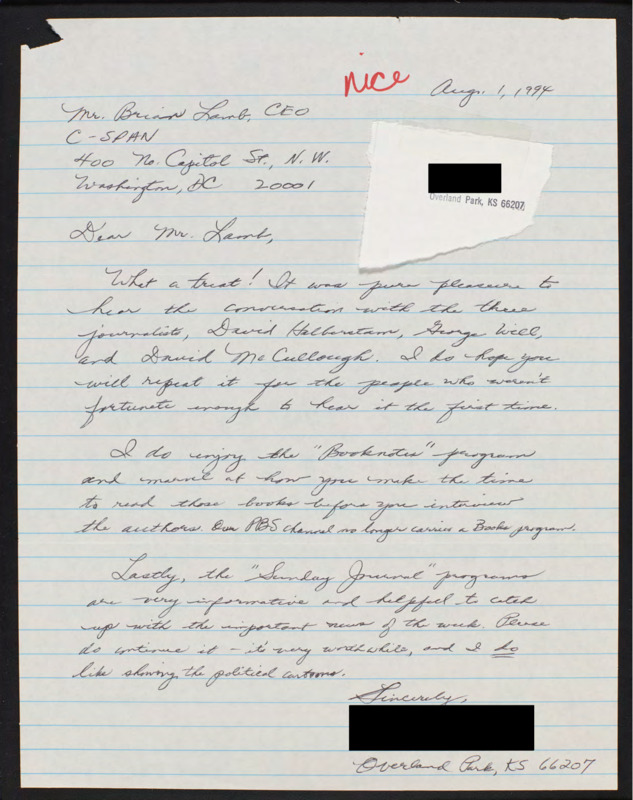 nice
Aug. 1, 1994
Mr. Brian Lamb, CEO
C-SPAN
400 No. Capitol St., N.W.
Washington, DC 20001
Overland Park, KS 66207
Dear Mr. Lamb,
What a treat! It was pure pleasure to
hear the conversation with the three
journalists, David Halberstam, George Will,
and David McCullough. I do hope you
will repeat it for the people who weren't
fortunate enough to hear it the first time.
I do enjoy the "Booknotes" program
and marvel at how you make the time
to read those books before you interview
the authors. Our PBS channel no longer carries a Books program.
Lastly, the "Sunday Journal" programs
are very informative and helpful to catch
up with the important news of the week. Please
do continue it - it's very worthwhile, and I do
like showing the political cartoons.
Sincerely,
Overland Park, KS 66207